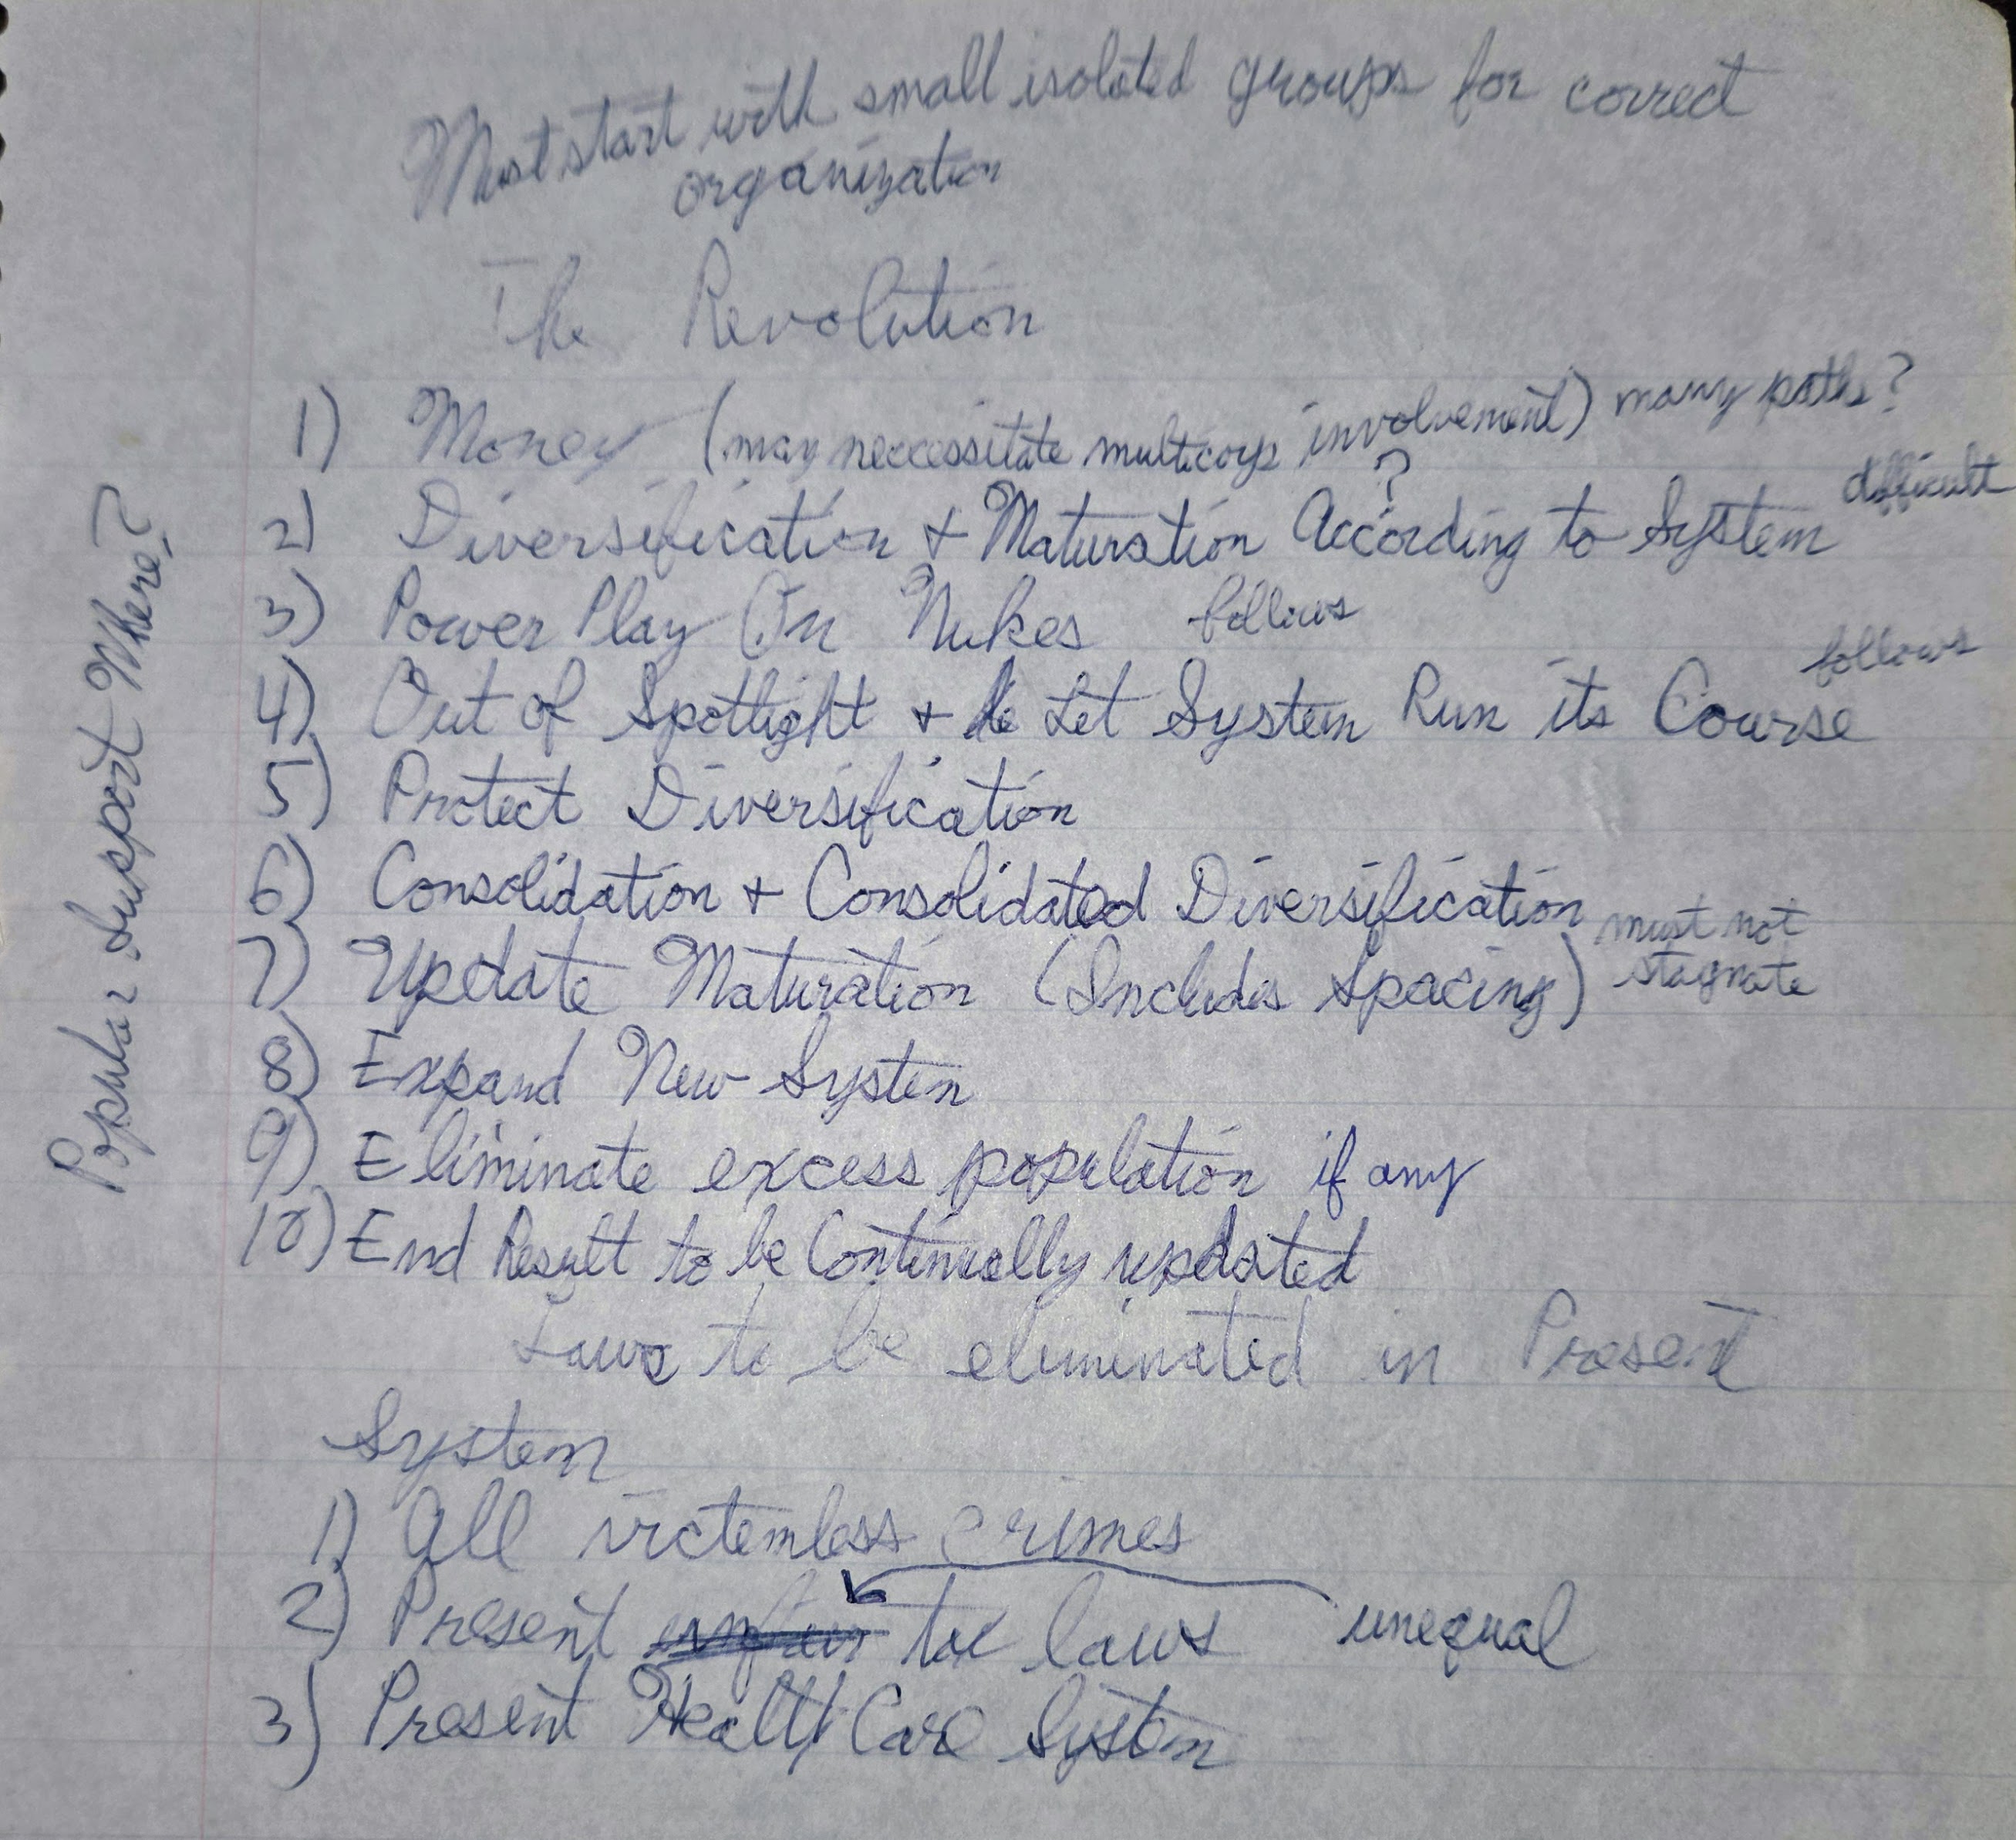 Must start with small isolated groups for correct
organization
The Revolution
1) Money (may neccessitate multicorp involvement) many paths?
2) Diversification + Maturation According to System difficult
?
3) Power Play On Nukes follows
4) Out of Spotlight + Let System Run its Course follows
5) Protect Diversification
6) Consolidation + Consolidated Diversification
7) Update Maturation (Includes Spacing) must not
stagnate
8) Expand New System
9) Eliminate excess population if any
10) End Result to be Continually updated
Laws to be eliminated in Present
System
1) All victemless crimes
2) Present tax laws unequal
3) Present Health Care System
Popular Support Where?